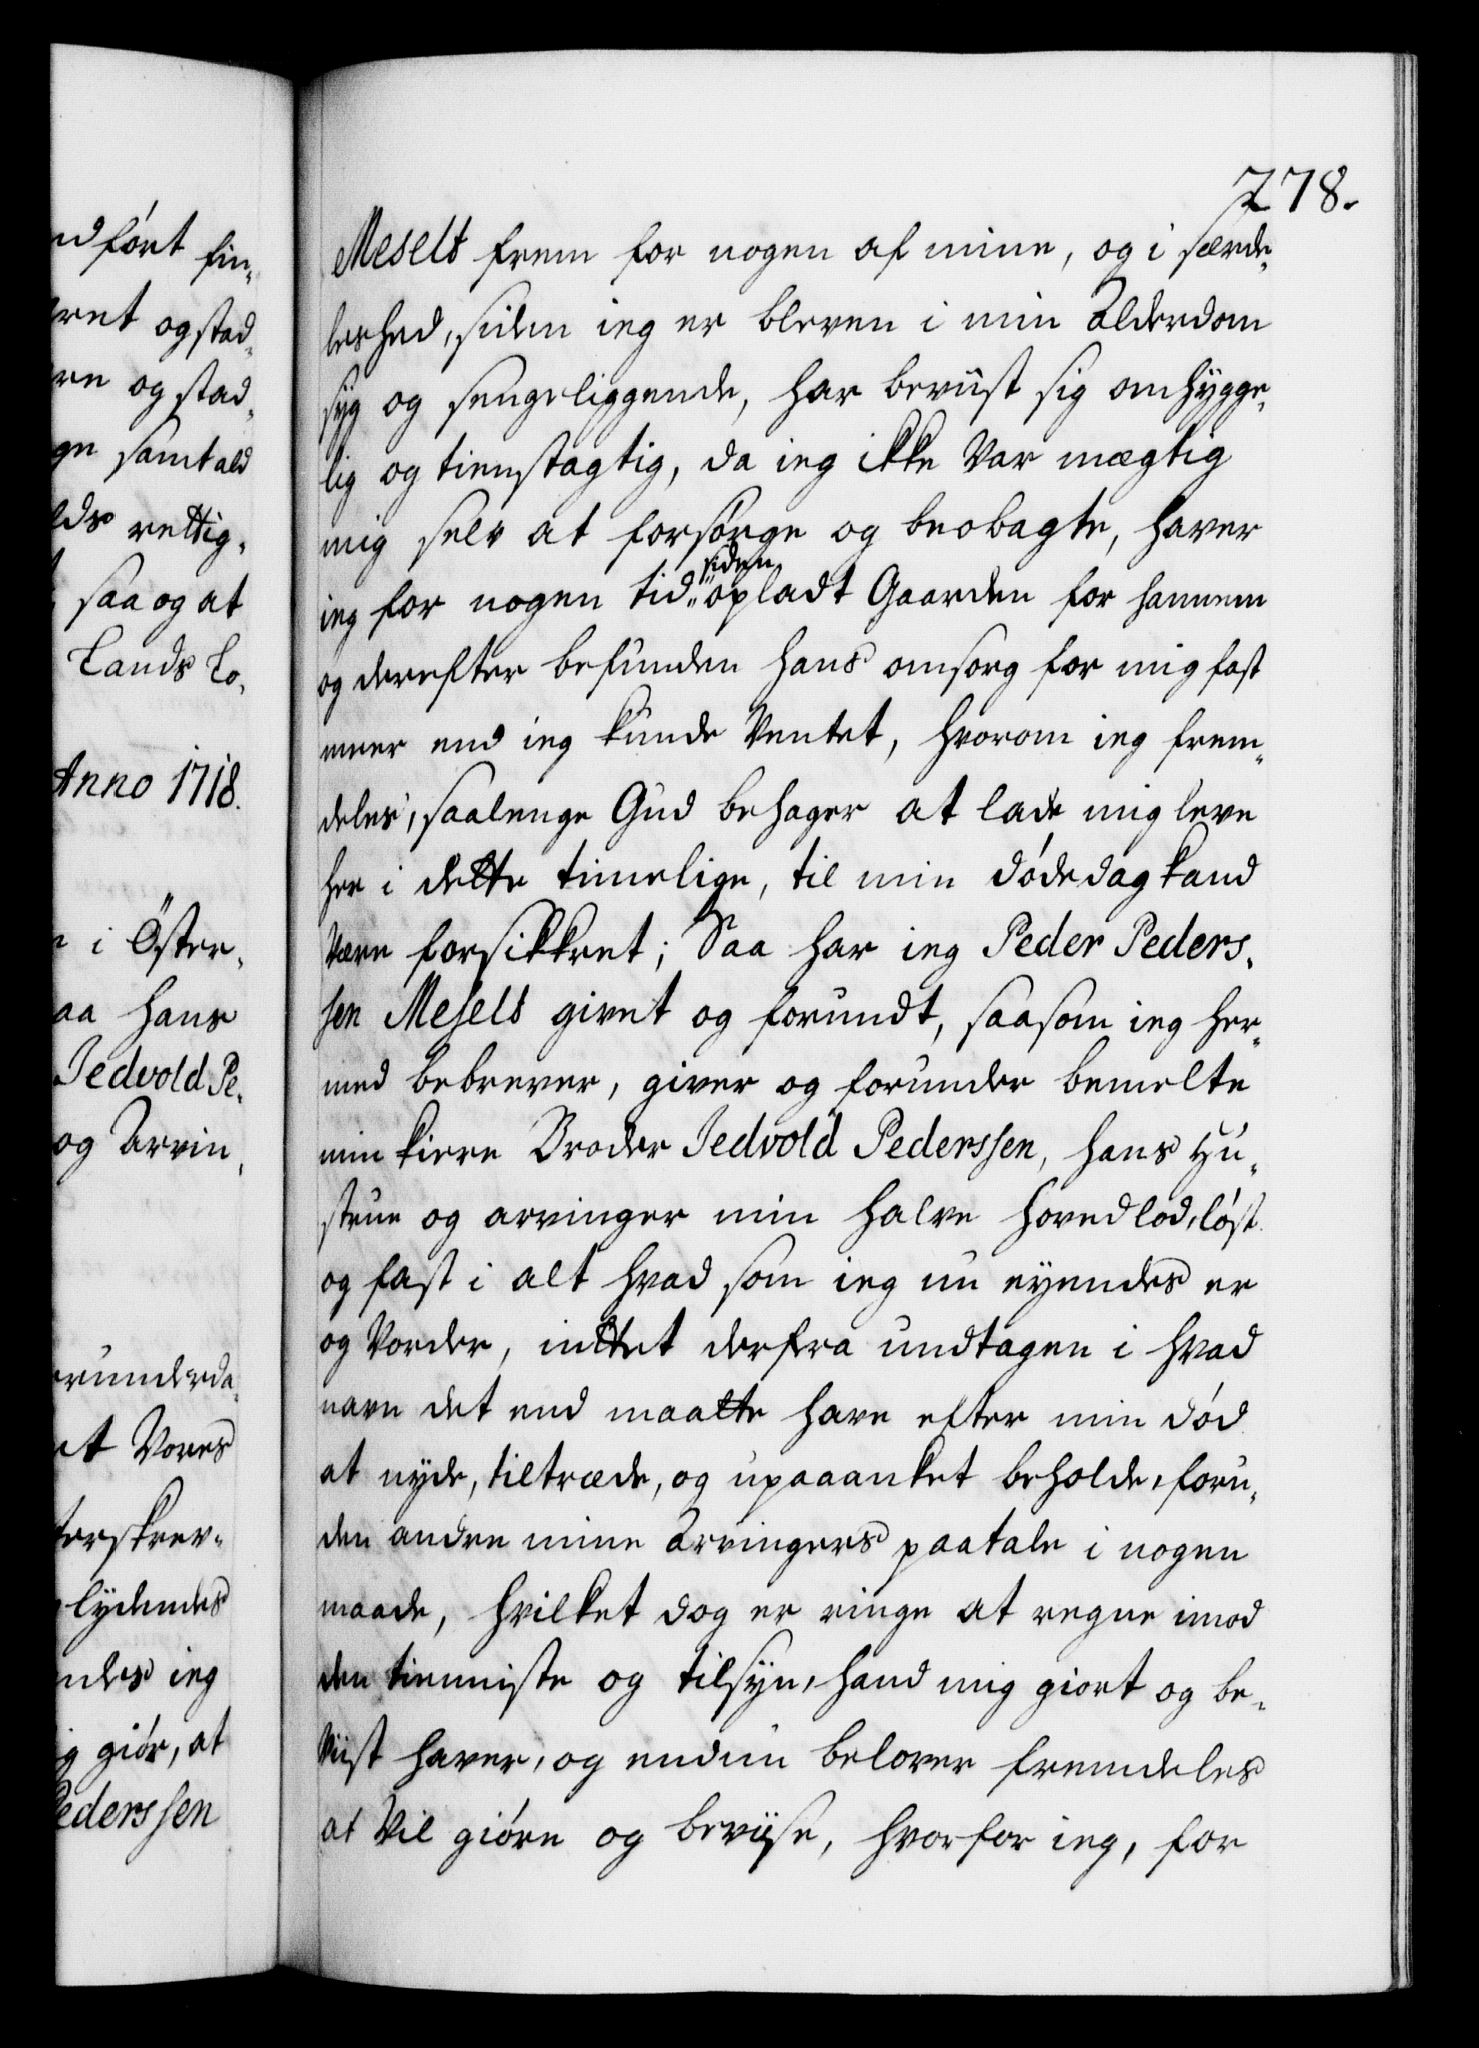 ndført fin-
ret og stad-
re og stad-
ge samt ald
lds rettig-
saa og at
Lands Lo-
Anno 1718.
i Øster-
aa hans
Jedvold Pe-
og Arvin-
runderda-
et Vores
terskrev-
lydendes
ndes ieg
g giør, at
Pederssen
278.
Mesels frem for nogen af mine, og i særde-
leshed, siden ieg er bleven i min Alderdom
syg og sengeliggende, har beviist sig omhygge-
lig og tienstagtig, da ieg ikke Var mægtig
mig selv at forsørge og beobagte, haver
siden
ieg for nogen tid opladt Gaarden for hannem
og derefter befunden hans omsorg for mig fast
meer end ieg kunde Ventet, hvorom ieg frem-
deles, saalenge Gud behager at lade mig leve
her i dette timelige, til min dødedag kand
Være forsikkret; Saa har ieg Peder Peders-
sen Mesels givet og forundt, saasom ieg her-
med bebrever, giver og forunder bemelte
min kiere Broder Jedvold Pederssen, hans Hu-
strue og arvinger min halve hovedlod, løst
og fast i alt hvad som ieg nu eyendes er
og Vorder, inttet derfra undtagen i hvad
navn det end maatte have efter min død
at nyde, tiltræde, og upaaanket beholde, foru-
den andre mine Arvingers paatale i nogen
maade, hvilket dog er ringe at regne imod
den tienniste og tilsyn, hand mig giort og be-
Viist haver, og endnu belover fremdeles
at Vil giøre og beviise, hvorfor ieg, for